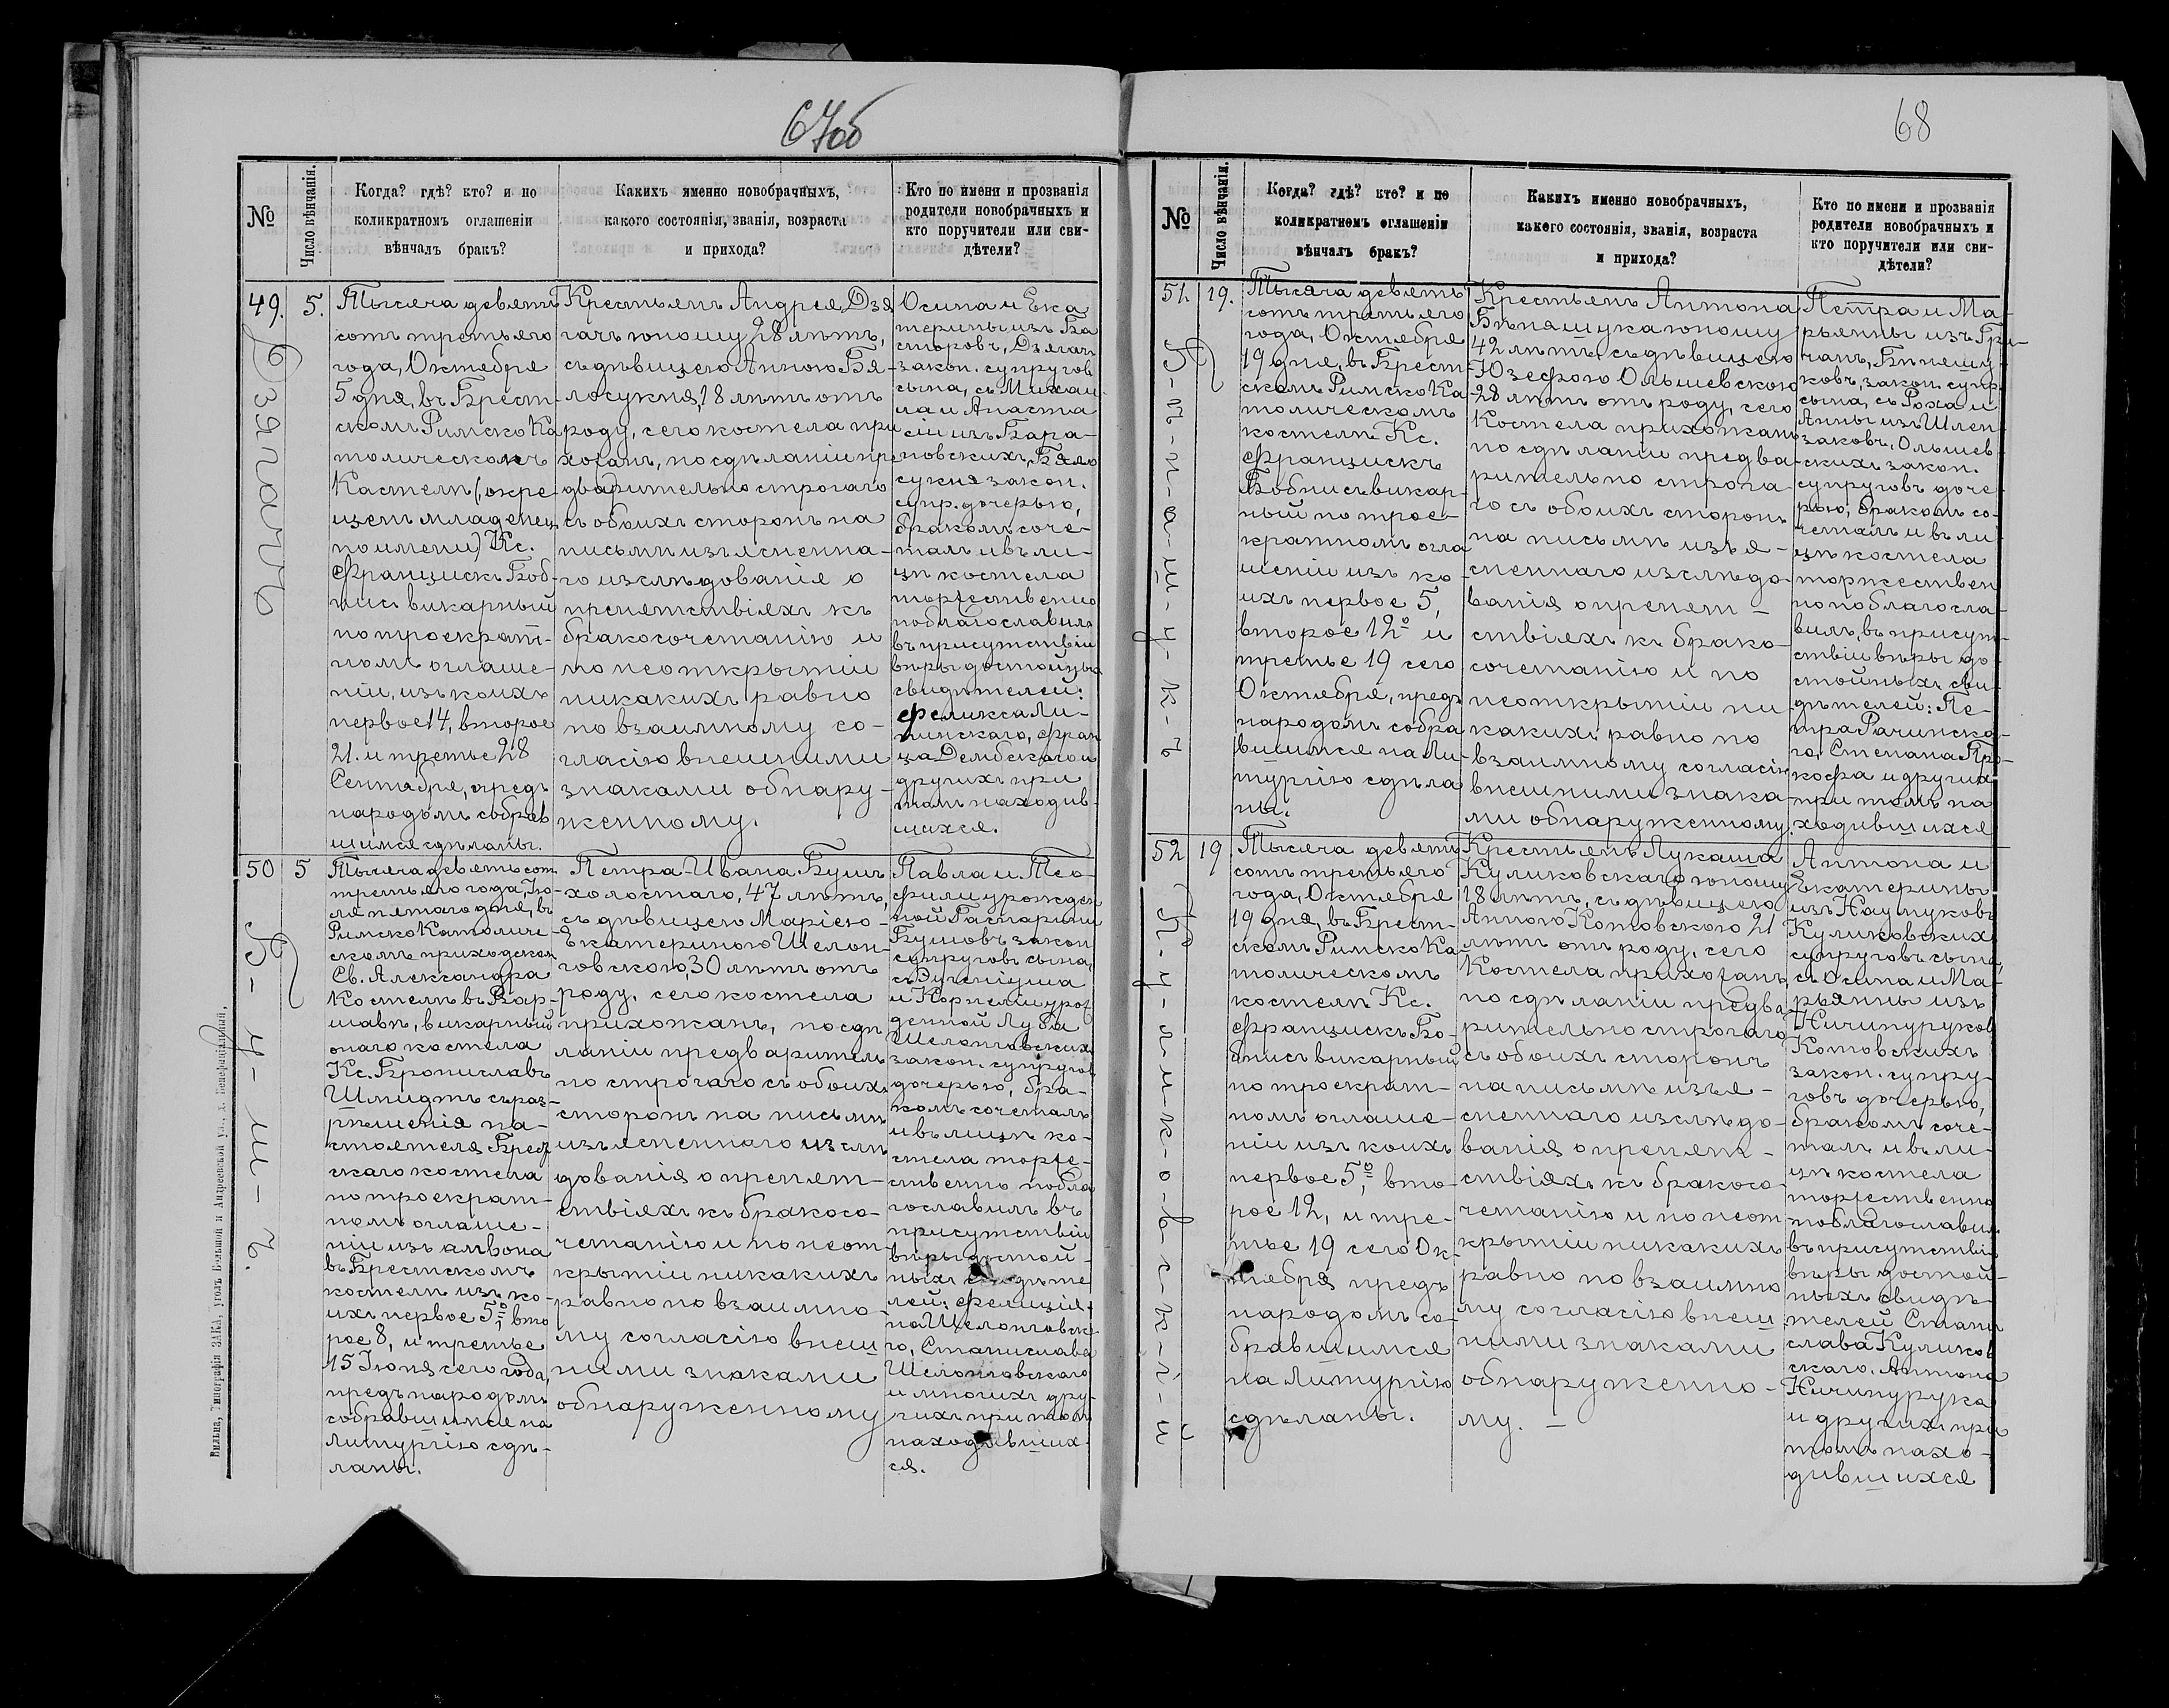 67об
№
Число вѣнчанія.
Когда? гдѣ? кто? и по
коликратномъ оглашеніи
вѣнчалъ бракъ?
Какихъ именно новобрачныхъ,
какого состоянія, званія, возраста
и прихода?
Кто по имени и прозванія
родители новобрачныхъ и
кто поручители или сви-
дѣтели?
49.
Дзягачъ
5.
Тысяча девять
сотъ третьяго
года, Октября
5 дня, въ Брест-
скомъ Римско Ка
толическомъ
Костелѣ (окре-
щенъ младенец
по имени) Кс.
Францискъ Боб-
нисъ викарный
по троекрат-
номъ оглаше-
ніи, изъ коихъ
первое 14, второе
21. и третье 28
Сентября, предъ
народомъ собрав
шимся сдѣланы.
Крестьянъ Андрея Дзя
гачъ юношу 28 лѣтъ,
съ дѣвицею Анною Бя-
лосукня, 18 лѣтъ отъ
роду, сего костела при
хожанъ, по сдѣланіи пре
дварительно строгаго
съ обоихъ сторонъ на
письмѣ изъясненна-
го изслѣдованія о
препятствіяхъ къ
бракосочетанію и
по неоткрытіи
никакихъ равно
по взаимному со-
гласію внешними
знаками обнару-
женному.
Осипа и Ека
терины изъ Ба
сторовъ, Дзягач
закон. супругов
сына, съ Михаи-
ла и Анаста
сіи изъ Бара-
новскихъ, Бяло
сукня закон.
супр. дочерью,
бракомъ соче-
талъ и въ ли-
цѣ костела
торжественно
поблагославилъ
въ присутствіи
вѣры достойныхъ
свидѣтелей:
Феликса Ли-
пинскаго, Фран
ца Дембскаго и
другихъ при
томъ находив-
шихся.
50
Б-у-ш-ъ.
5
Тысяча девять сот
третьяго года, Iю-
ля пятаго дня, въ
Римско Католиче-
скомъ приходском
Св. Александра
Костелѣ въ Вар-
шавѣ, викарный
онаго костела
Кс. Брониславъ
Шмидтъ съ раз-
рѣшенія на-
стоятеля Брест
скаго костела
по троекрат-
номъ оглаше-
ніи изъ амвона
въ Брестскомъ
костелѣ изъ ко-
ихъ первое 5º, вто
рое 8, и третье
15 Iюня сего года
предъ народомъ
собравшимся на
Литургію сдѣ-
ланы.
Петра-Ивана Бушъ
холостаго, 47 лѣтъ,
съ дѣвицею Маріею-
Екатериною Шелон-
говскою, 30 лѣтъ отъ
роду, сего костела
прихожанъ, по сдѣ
ланіи предваритель
но строгаго съ обоихъ
сторонъ на письмѣ
изъясненнаго изслѣ
дованія о препят-
ствіяхъ къ бракосо-
четанію и по неот
крытіи никакихъ
равно по взаимно-
му согласію внеш
ними знаками
обнаруженному
Павла и Тео-
филіи урожден
ной Гаспарини
Бушовъ закон
супруговъ сына,
съ Эугеніуша
и Корнеліи урож
денной Луба
Шелонговских
закон. супругов
дочерью, бра-
комъ сочеталъ
и въ лицѣ ко-
стела торже-
ственно побла
гославилъ въ
присутствіи
вѣры достой-
ныхъ свидѣте
лей: Фелиціа-
на Шелонговска
го, Станислава
Шелонговскаго
и многихъ дру-
гихъ при томъ
находившихъ
ся.
Вильна, Типографія ЗАКА, уголъ Большой и Андреевской ул., д. Бенефиціальный.
68
№
Число вѣнчанія.
Когда? гдѣ? кто? и по
коликратномъ оглашеніи
вѣнчалъ бракъ?
Какихъ именно новобрачныхъ,
какого состоянія, званія, возраста
и прихода?
Кто по имени и прозванія
родители новобрачныхъ и
кто поручители или сви-
дѣтели?
51.
Б-ѣ-н-я-ш-у-к-ъ
19.
Тысяча девять
сотъ третьяго
года, Октября
19 дня, въ Брест-
скомъ Римско Ка
толическомъ
костелѣ Кс.
Францискъ
Бобнисъ викар-
ный по трое-
кратномъ огла
шеніи изъ ко-
ихъ первое 5,
второе 12º и
третье 19 сего
Октября, предъ
народомъ собра
вшимся на Ли-
тургію сдѣла
ны.
Крестьянъ Антона
Бѣняшука юношу
42 лѣтъ, съ дѣвицею
Юзефою Ольшевскою
28 лѣтъ отъ роду, сего
Костела прихожанъ
по сдѣланіи предва-
рительно строга-
го съ обоихъ сторонъ
на письмѣ изъя-
сненнаго изслѣдо-
ванія о препят-
ствіяхъ къ брако-
сочетанію и по
неоткрытіи ни
какихъ равно по
взаимному согласію
внешними знака-
ми обнаруженному.
Петра и Ма-
рьянны изъ Гри-
чанъ, Бѣняшу-
ковъ, закон. супр.
сына, съ Роха и
Анны изъ Шлен-
заковъ, Ольшев-
скихъ закон.
супруговъ доче-
рью, бракомъ со-
четалъ и въ ли-
цѣ костела
торжествен
но поблагосла-
вилъ, въ присут-
ствіи вѣры до-
стойныхъ сви-
дѣтелей: Пе-
тра Рачинска-
го, Степана Про-
кофа и другихъ
при томъ на
ходившихся
52
К-у-л-и-к-о-в-с-к-і-й
19
Тысяча девять
сотъ третьяго
года, Октября
19 дня, въ Брест-
скомъ Римско Ка
толическомъ
костелѣ Кс.
Францискъ Бо-
бнисъ викарный
по троекрат-
номъ оглаше-
ніи изъ коихъ
первое 5º, вто-
рое 12, и тре-
тье 19 сего Ок-
тября предъ
народомъ со-
бравшимся
на Литургію
сдѣланы.
Крестьянъ Лукаша
Куликовскаго юношу
18 лѣтъ, съ дѣвицею
Анною Котовскою 21
лѣтъ отъ роду, сего
Костела прихожанъ,
по сдѣланіи предва
рительно строгаго
съ обоихъ сторонъ
на письмѣ изъя-
сненнаго изслѣдо-
ванія о препят-
ствіяхъ къ бракосо-
четанію и по неот
крытіи никакихъ
равно по взаимно
му согласію внеш
ними знаками
обнаруженно-
му. -
Антона и
Екатерины
изъ Наумуковъ
Куликовскихъ
супруговъ сына,
съ Осипа и Ма-
рьянны изъ
Ничипуруковъ
Котовскихъ
закон. супру-
говъ дочерью,
бракомъ соче-
талъ и въ ли-
цѣ костела
торжественно
поблагославилъ
въ присутствіи
вѣры достой-
ныхъ свидѣ-
телей Стани
слава Куликов
скаго, Антона
Ничипурука
и другихъ при
томъ нахо-
дившихся